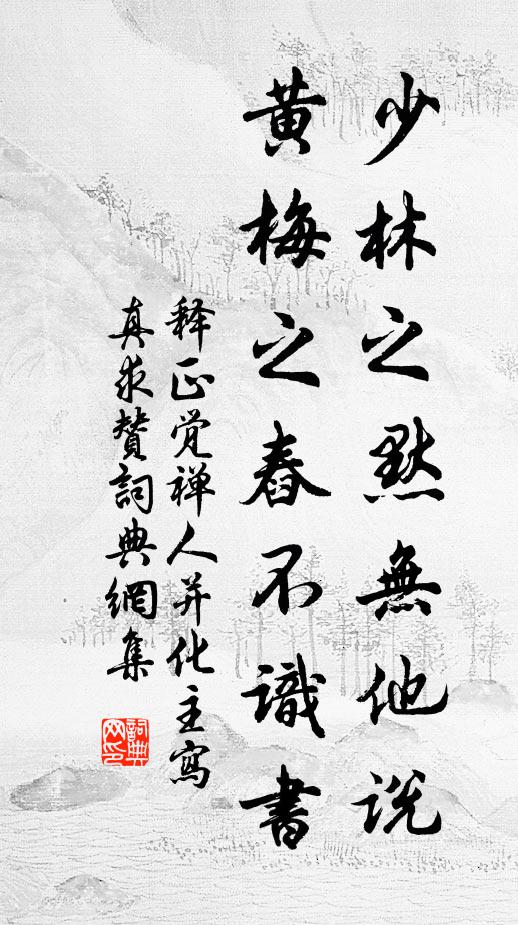 少林之默無他説
黄梅之舂不識書
释正觉禅人并化主寫
真求赞詞典網集
詞典
网印